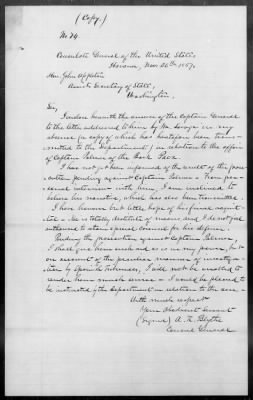 (Copy.)
No. 74.
Consulate General of the United States
Havana, Nov. 26th 1857.
Hon. John Appleton
Assist. Secretary of State,
Washington.
Sir,
I enclose herewith the answer of the Captain General
to the letter addressed to him by Mr. Savage in my
absence (a copy of which has heretofore been trans-
mitted to the Department) in relation to the affair
of Captain Palmer of the Bark
I has not yet been informed of the result of the prose-
cution pending against Captain From
personal interview with him, I am inclined to
believe his narrative, which has also been transmitted.
I have however but little hope of his
He is totally destitute of means and I do not feel
authorized to retain special counsel for his defence.
Pending the prosecution against Captain
I shall give him such aid as is in my power, but
on account of the peculiar manner of investiga-
tion by Spanish tribunals, I shall not be enabled to
render him much service. I would be pleased to
be instructed by the Department in relation to the case
With much respect
Your Obedient Servant
(Signed) A. K. Blythe
Consul General